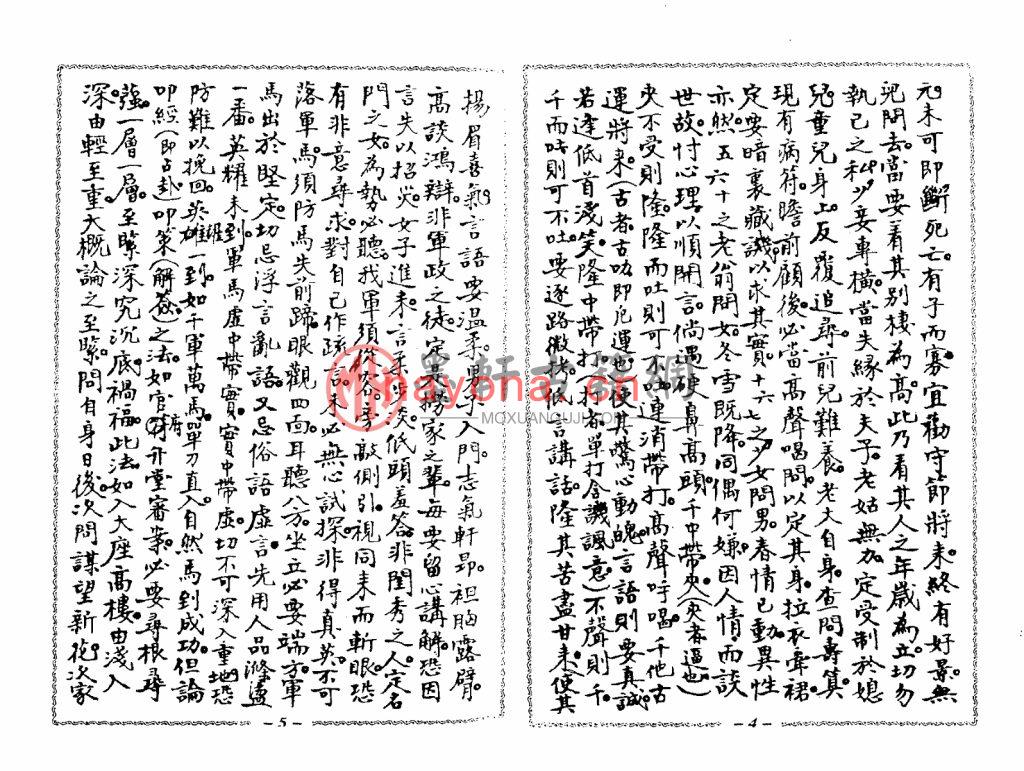 元未可即斷死亡。有子而寡宜勸守節將來。終有好景。無
兒問去。當要看其別棲為高。此乃看其人之年歲為立。切勿
執己之私少妾專橫。當失緣於夫子。老姑無加定受制於媳
兒。童兒身上反覆追尋。前兒難養。老大自身。查問壽算。
現有病符。瞻前顧後。必當高聲喝問。以定其身。拉衣牽裙
定要暗裏藏譏以求其實。十六七之少女問男。春情已動。異性
亦然。五六十之老翁問女。冬雪既降。同偶何嫌。因人情而談
世故。忖心理以順開言。倘遇硬鼻高頭。千中帶夾。(夾者逼也)
夾不受則隆。隆而吐則可。不吐連消帶打。高聲呼喝。千他古
運將來。(古者古叻即厄運也)使其驚心動魄。言語則要真誠
若逢低首淺笑。隆中帶打。(打者單打含譏諷意)不聲則千
千而吐則可。不吐要逐路微拷。低言講話隆其苦盡甘來。(使其
揚眉喜氣。言語要溫柔。男子入門志氣軒昂。袒胸露臂。
高談鴻辯。非軍政之徒。定業撈家之輩。每要留心講解。恐因
言失以招災。女子進來。言柔步淡。低頭羞答。非閨秀之人。定名
門之女。為勢必聽。我軍須從容。旁敲側引。視同來而斬眼。恐
有非意尋求。對自己作疏言。來必無心試探。非得真英。不可
落軍馬。須防馬失前蹄。眼觀四面耳聽八方。坐立必要端方。軍
馬出於堅定。切忌浮言亂語。又忌俗語虛言。先用人品滌盪
一番。英耀未到。軍馬虛中帶實。實中帶虛。切不可深入重地。恐
防難以挽回。英雄一到。如千軍萬馬。單刀直入。自然馬到成功。但論
叩經(即占卦)叩策(解簽)之法。如官府升堂審案。必要尋根尋
強。一層一層。至緊深究沉底禍福。此法如入大座高樓。由淺入
深。由輕至重。大概論之。至緊問自身日後。次問謀望新花。次家
-5-
-4-
墨軒古籍網
mayona.cn
MOXUANGUJI.COM